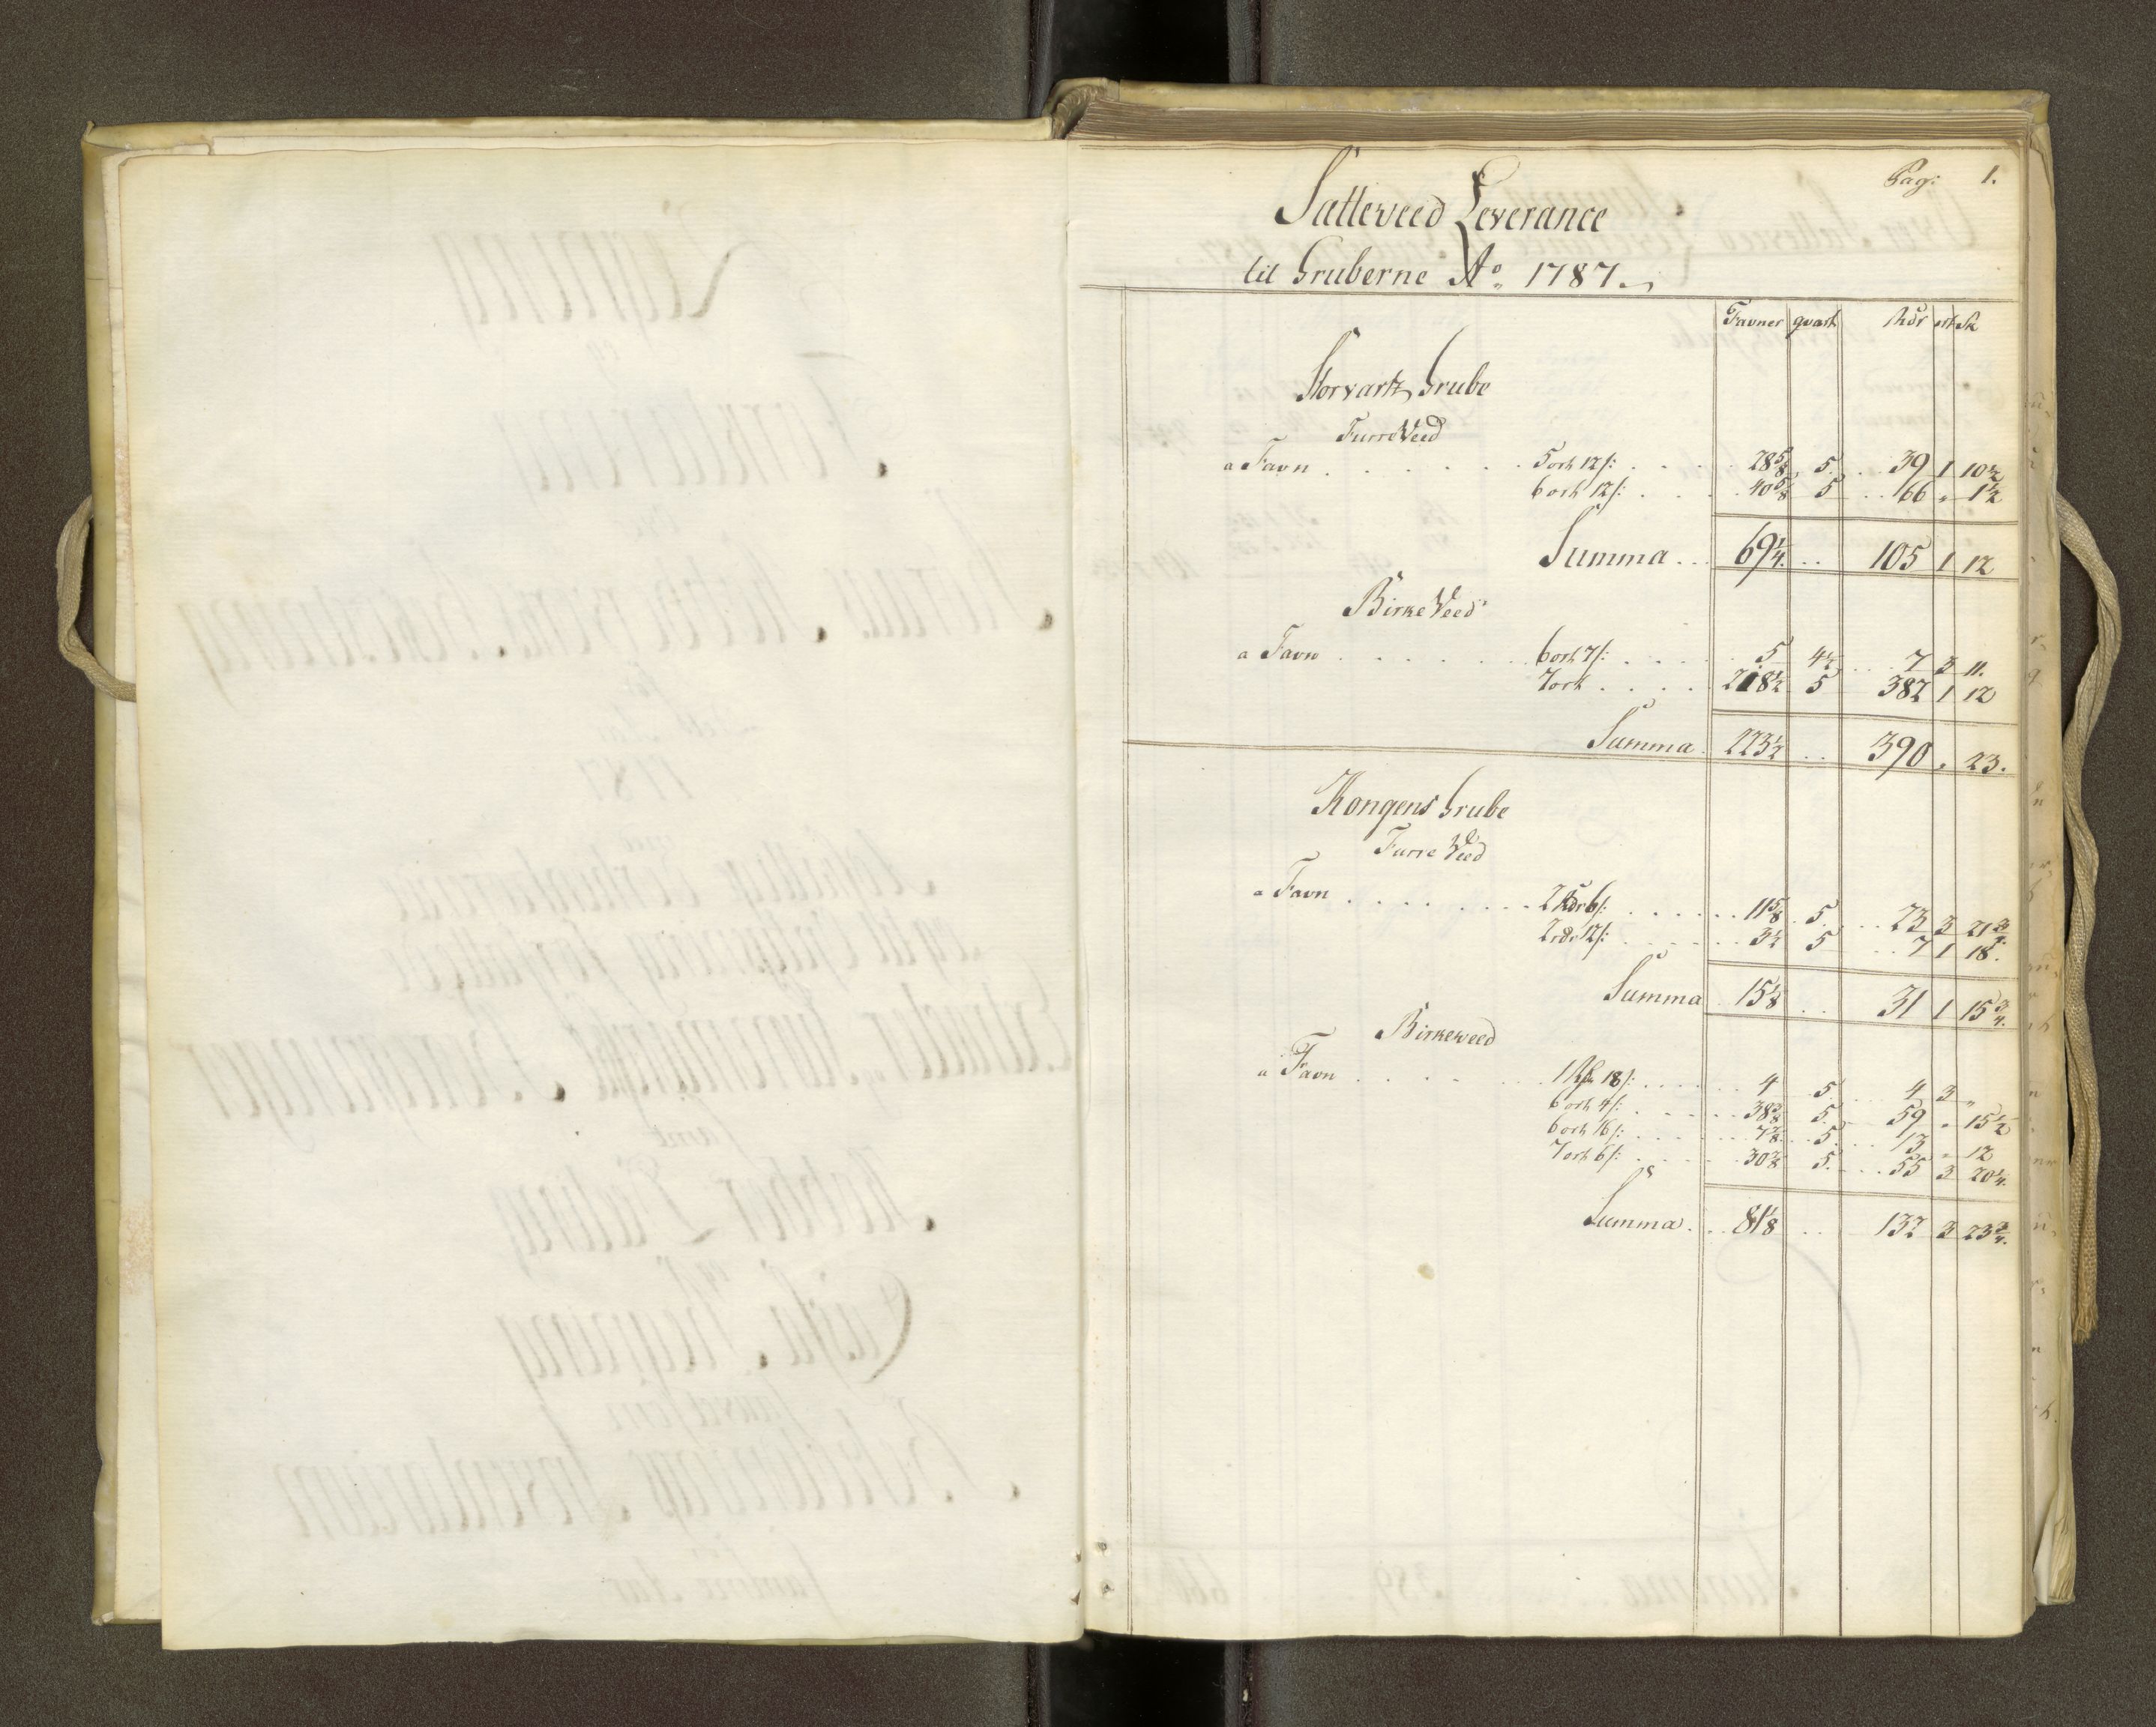 Pag: 1.
Satteveed Leverance
til Gruberne Ao 1787.
Favner qvart Rdr ort sk
Storvartz Grube
FurreVeed
a Favn . . . 5 ort 12 s: . . . 28 5/8 5. . . 39 1 10 1/2
6 ort 12 s: . . . 40 5/8 5 . . 66 „ 1 1/2
Summa . . 69 1/4 . . 105 1 12
Birke Veed
a Favn . . . 6 ort 7 s: . . . 5 4 1/2 . . 7 3 11.
7 ort . . . 218 1/2 5 382 1 12
Summa . 223 1/2 . . 390 „ 23.
Kongens Grube
Furre Veed
a Favn . . . 2 Rdr 6 s: . . . 11 5/8 5. . . 23 3 21 3/4
2 rdr 12 s: . . . 3 1/2 5 . . 7 1 18.
Summa 15 1/8 . . 31 1 15 3/4.
Birkeveed
a Favn . . . 1 Rdr 18 s: . . . 4 5. 4 3 „
6 ort 4 s: . . . 38 3/8 5. 59 „ 15 1/2
6 ort 16 s: . . . 7 7/8 5. 13 „ 12
7 ort 6 s: . . . 30 7/8 5. . . 55 3 20 1/4.
Summa . . 81 1/8 . . 132 3 23 3/4.